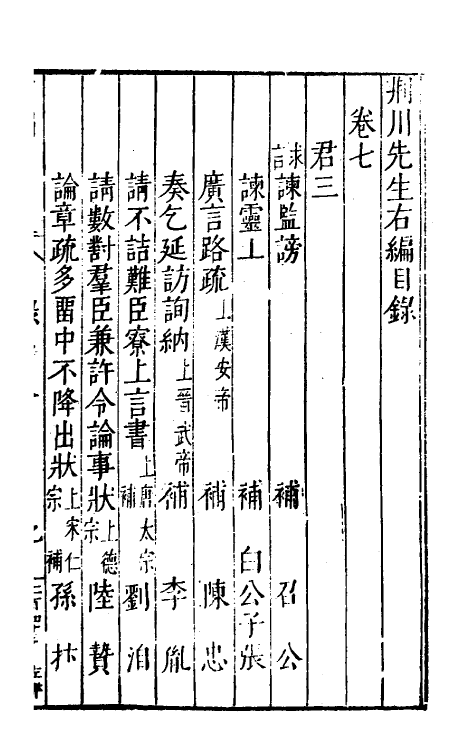 荆川先生右編目錄
卷七
君三
求諫 諫監謗 補 召公
諫靈王 補 白公子張
廣言路疏 上漢安帝 補 陳忠
奏乞延訪詢納 上晉武帝 補 李胤
請不詰難臣寮上言書 上唐太宗 補 劉洎
請數對羣臣兼許令論事狀 上德宗 陸贄
論章疏多畱中不降出狀 上宋仁宗 補 孫抃